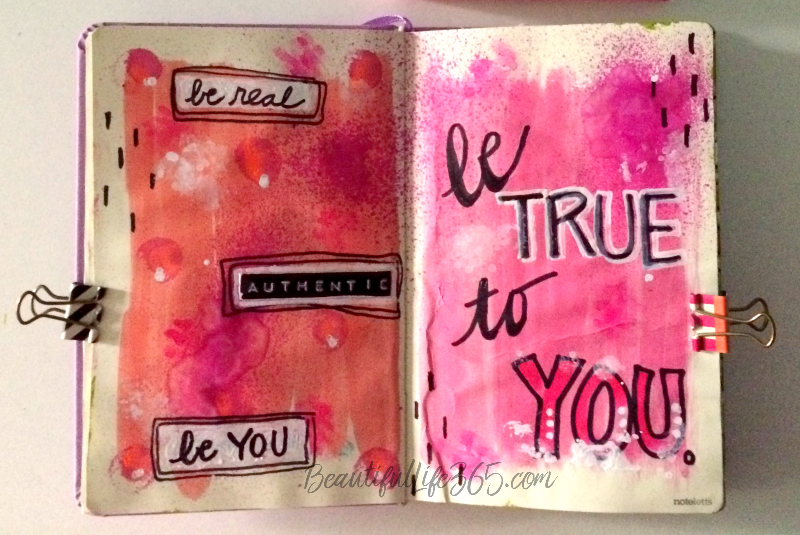 be real
AUTHENTIC
be YOU
be
TRUE
to
YOU.
BeautifulLife365.com
noteletts